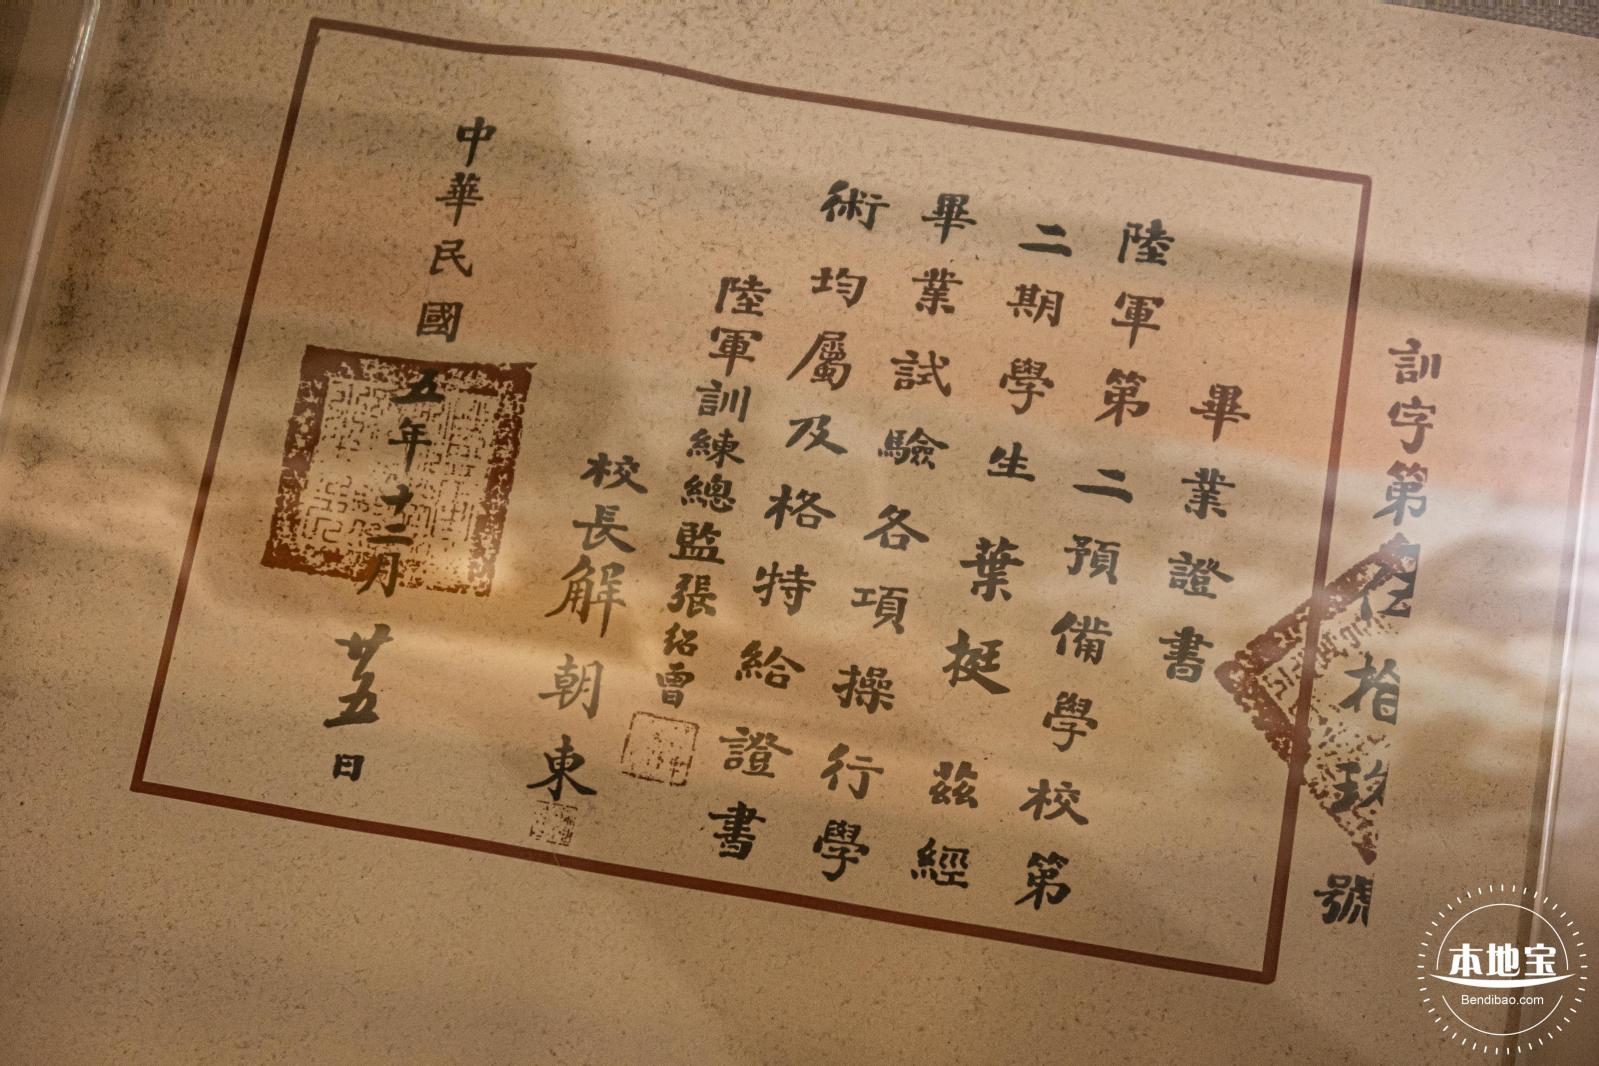 訓字第伍拾玖號
畢業證書
陸軍第二預備學校第
二期學生葉挺茲經
畢業試驗各項操行學
術均屬及格特給證書
陸軍訓練總監張紹曾
校長解朝東
中華民國五年十二月廿五日
本地宝
Bendibao.com